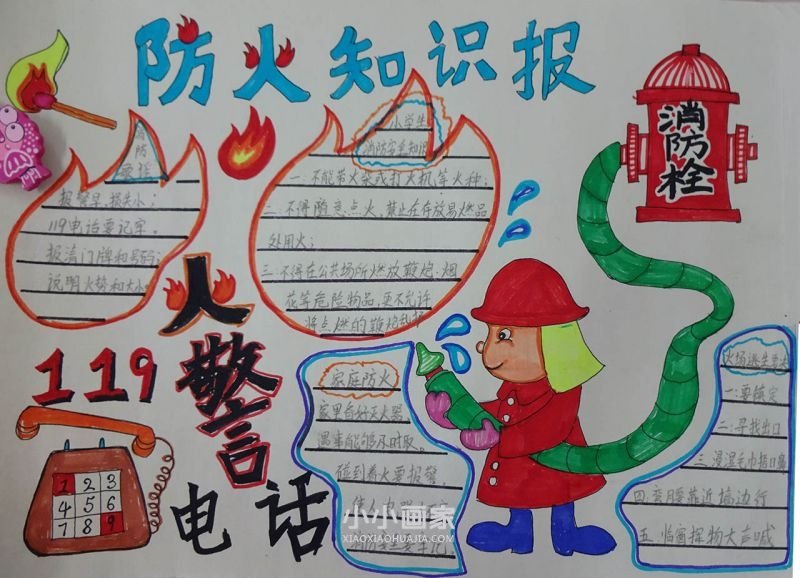 防火知识报
消防
要括
报警早，损失小；
119电话要记牢。
报清门牌和号码；
说明火势和大小。
小学生
消防安全知识
一、不能带火柴或打火机等火种；
二、不得随意点火，禁止在存放易燃品
处用火；
三、不得在公共场所燃放鞭炮、烟
花等危险物品，更不允许
将点燃的鞭炮乱
消防栓
火警
119
电话
1 2 3
4 5 6
7 8 9
家庭防火
家里备好灭火器
遇事能够及时取。
碰到着火要报警，
火场逃生要
一：要镇定
二：寻找出口
三：浸湿毛巾捂口鼻
四：弯腰靠近墙边行
五：临窗挥物大声喊
小小画家
XIAOXIAOHUAJIA.COM